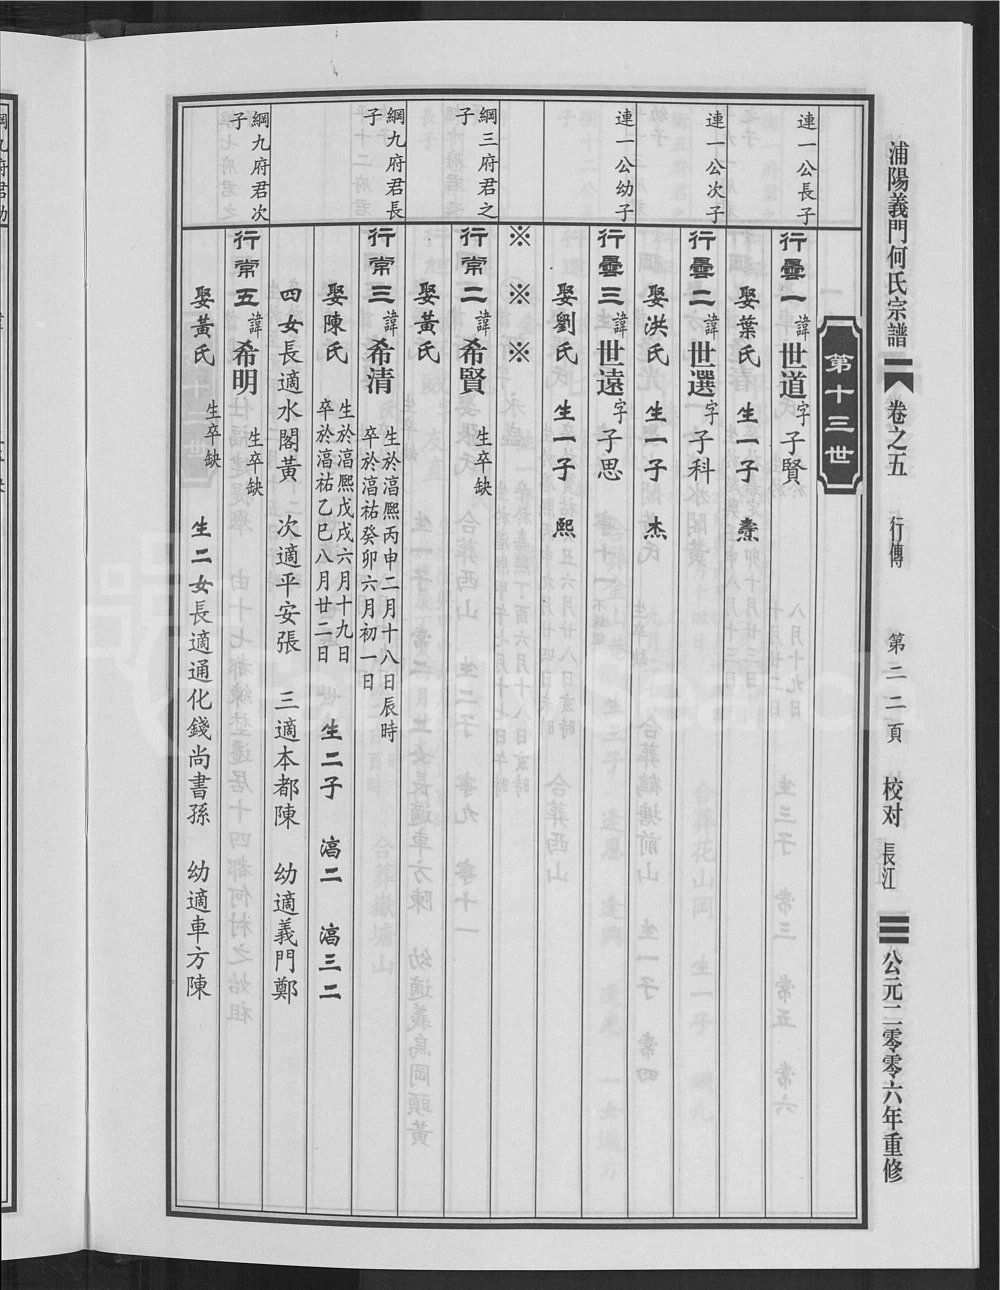 浦陽義門何氏宗譜 卷之五 行傳 第二二頁 校对 長江 公元二零零六年重修
第十三世
連一公長子
行曇一 諱世道 字子賢
娶葉氏 生一子 橐
連一公次子
行曇二 諱世選 字子科
娶洪氏 生一子 杰
連一公幼子
行曇三 諱世遠 字子思
娶劉氏 生一子 熙
※ ※ ※
綱三府君之子
行常二 諱希賢 生卒缺
娶黃氏
綱九府君長子
行常三 諱希清 生於淯熙丙申二月十八日辰時
卒於淯祐癸卯六月初一日
娶陳氏 生於淯熙戊戌六月十九日
卒於淯祐乙巳八月廿二日 生二子 淯二 淯三二
四女長適水閣黃 次適平安張 三適本都陳 幼適義門鄭
綱九府君次子
行常五 諱希明 生卒缺
娶黃氏 生卒缺 生二女長適通化錢尚書孫 幼適車方陳
綱九府君幼